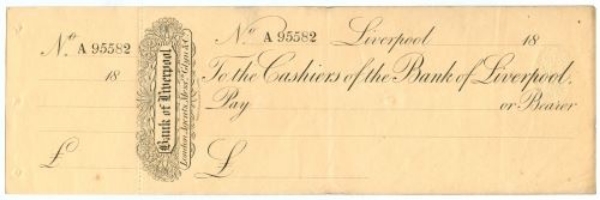 No. A 95582
18
£
Bank of Liverpool
London Agents, Messrs. Glyn & Co.
No. A 95582 Liverpool 18
To the Cashiers of the Bank of Liverpool.
Pay or Bearer
£